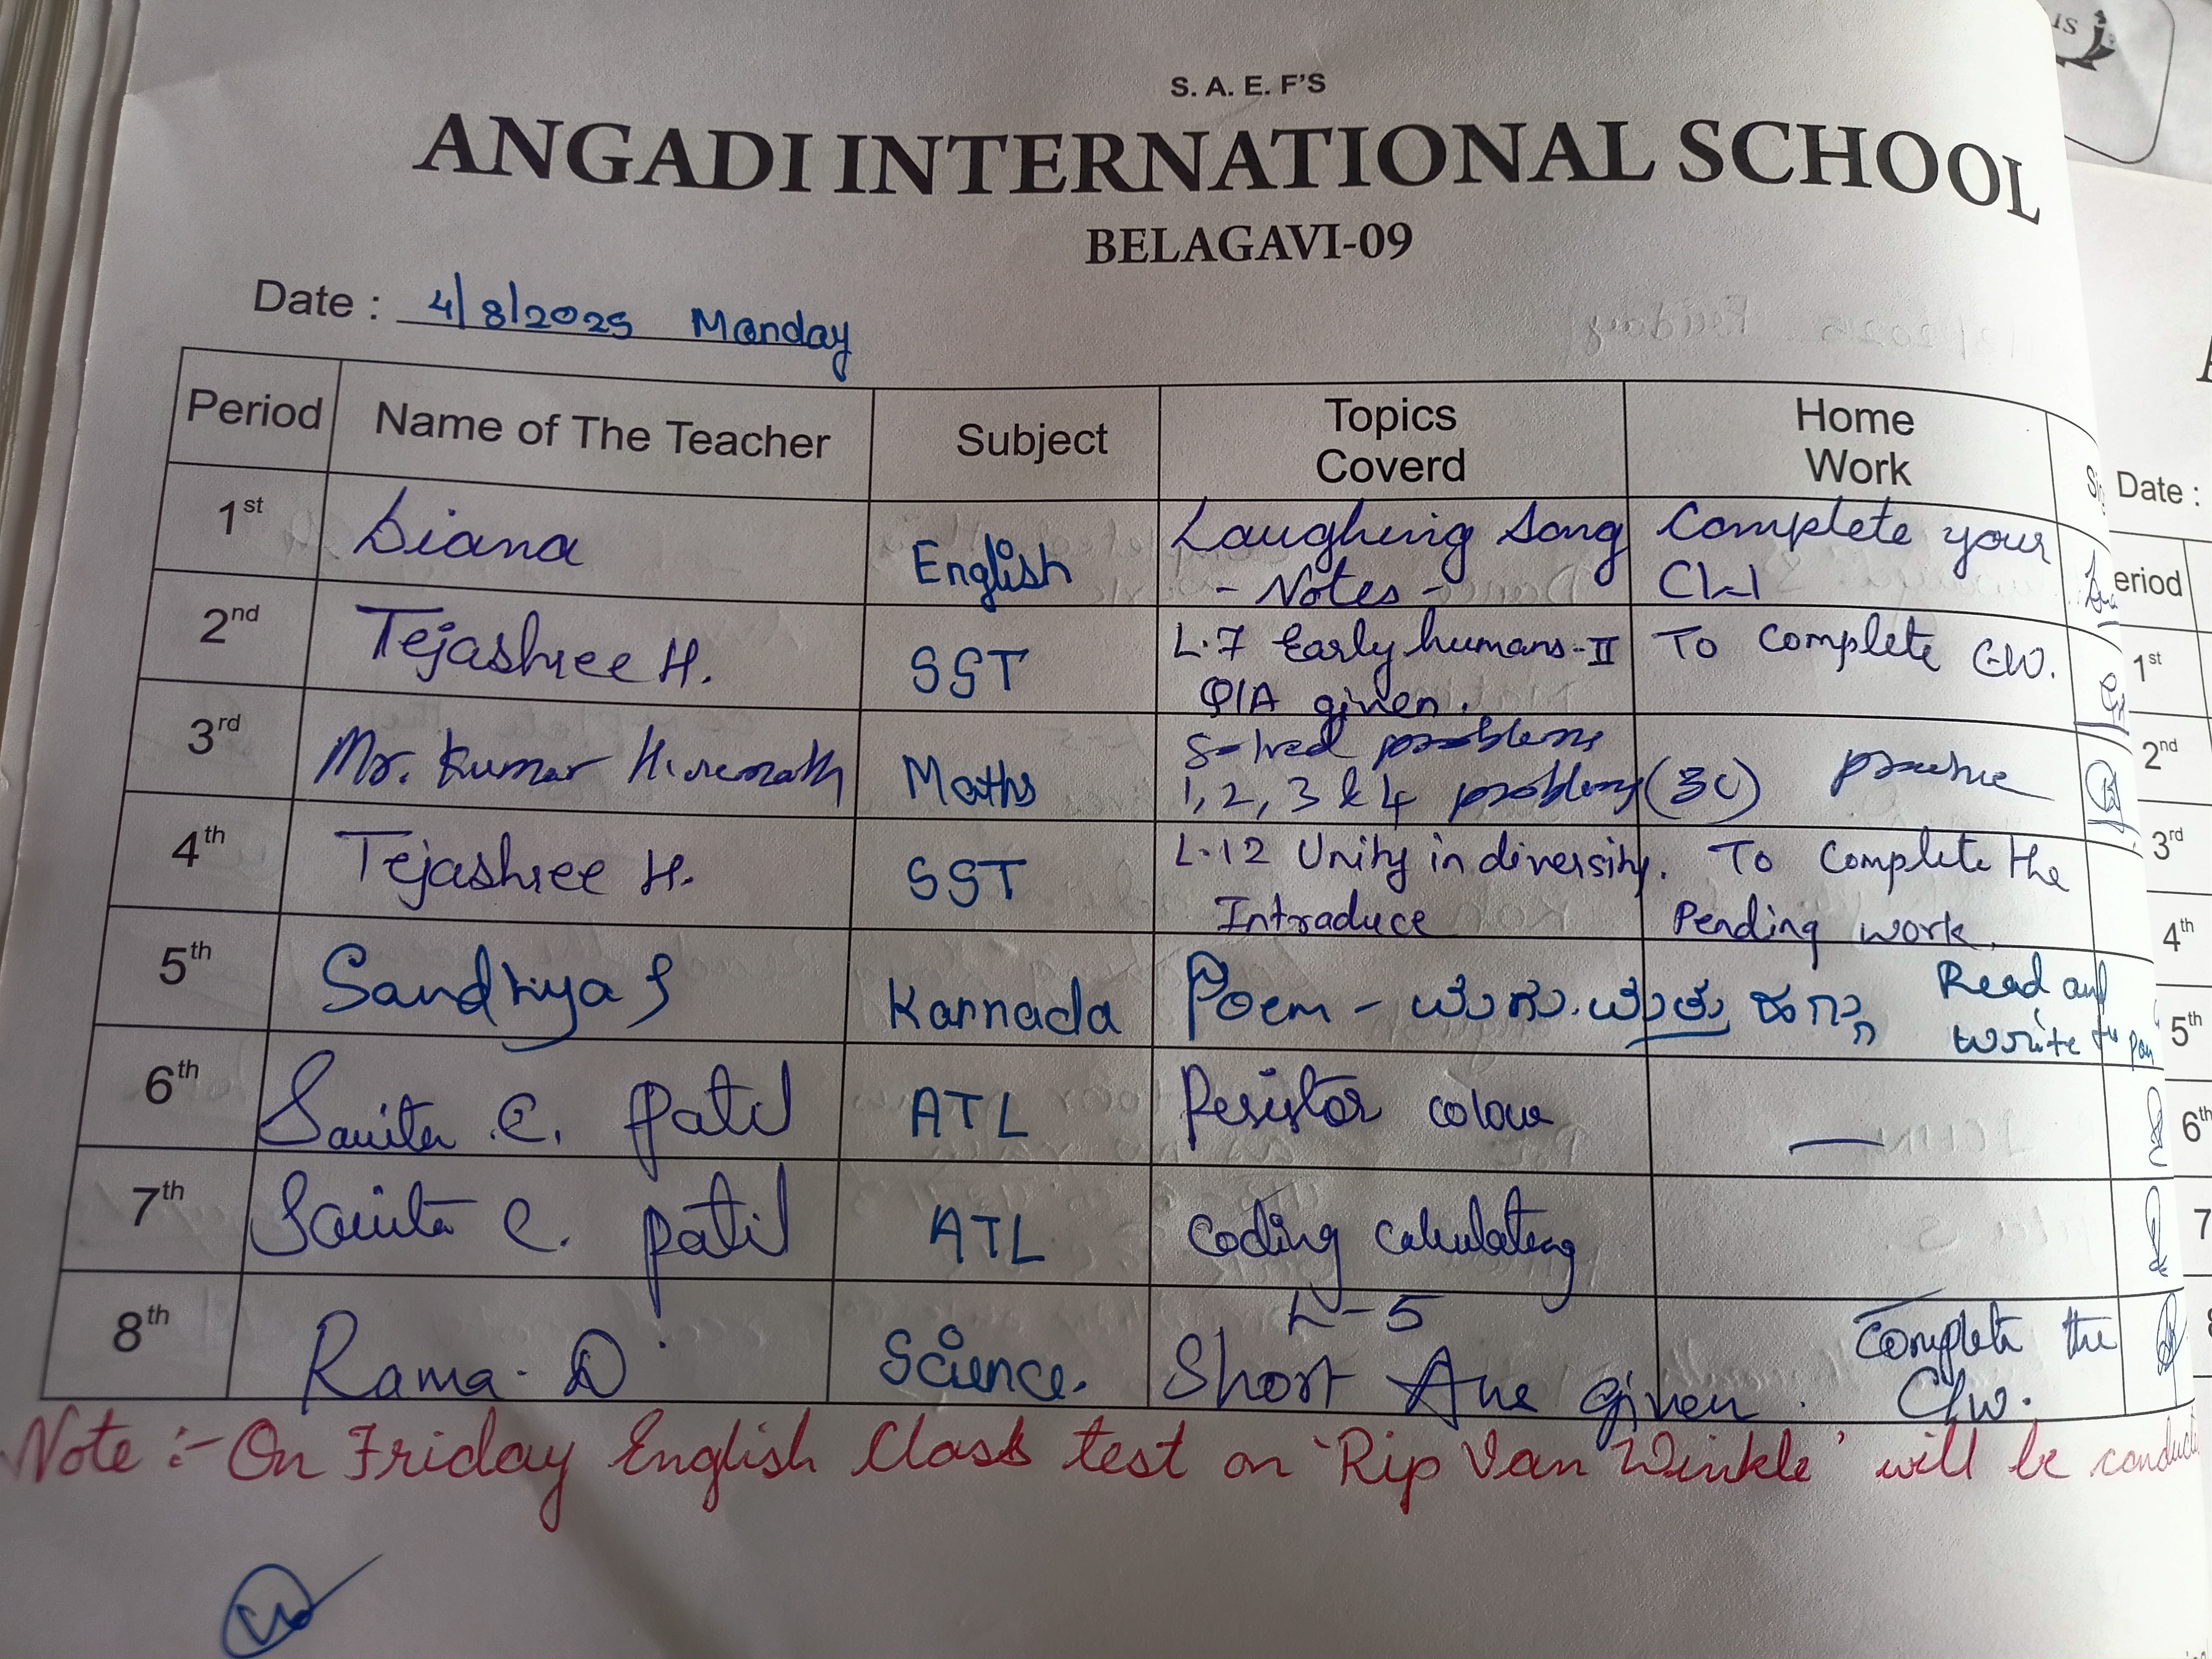 S. A. E. F'S
ANGADI INTERNATIONAL SCHOOL
BELAGAVI-09
Date : 4/8/2025 Monday
Period Name of The Teacher Subject Topics Coverd Home Work
1st Diana English Laughing Song - Notes - Complete your CW
2nd Tejashree H. SST L.7 Early humans-II Q/A given. To complete C.W.
3rd Mr. Kumar Hiremath Maths Solved problems 1, 2, 3 & 4 problems (3C) practice
4th Tejashree H. SST L.12 Unity in diversity. Intraduce To Complete the Pending work.
5th Sandhya S Kannada Poem - ಮಗು ಮತ್ತು Read and write
6th Savita C. Patil ATL Resistor colour —
7th Savita C. Patil ATL Coding calculating
8th Rama. D Science. L-5 Short Ans given. Complete the C/w.
Note :- On Friday English Class test on 'Rip Van Winkle' will be
Date :
eriod
1st
2nd
3rd
4th
5th
6th
7